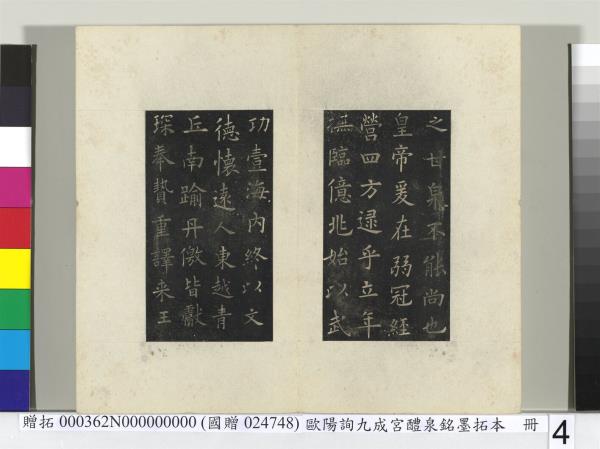 之甘泉不能尚也
皇帝爰在弱冠經
營四方逮乎立年
撫臨億兆始以武
功壹海內終以文
德懷遠人東越青
丘南踰丹儌皆獻
琛奉贄重譯来王
贈拓 000362N000000000 (國贈 024748) 歐陽詢九成宮醴泉銘墨拓本 冊
4